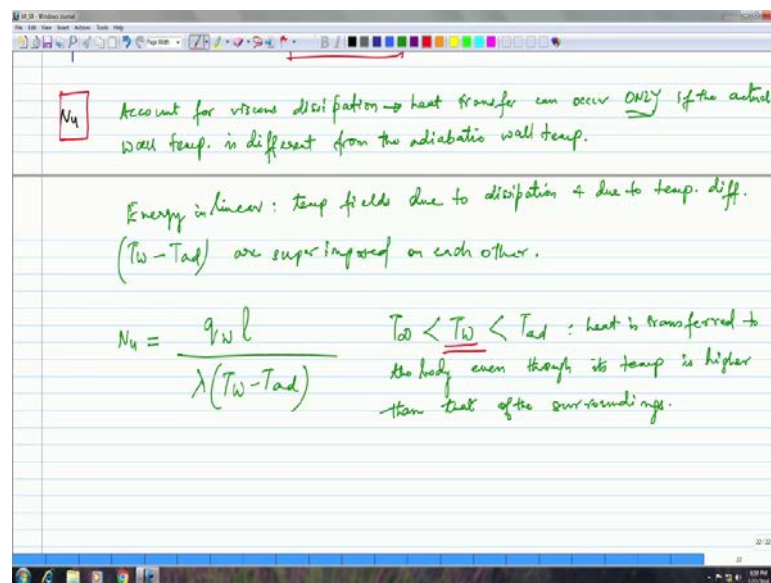 File Edit View Insert Actions Tools Help
Page Width
B I
Nu
Account for viscous dissipation → heat transfer can occur ONLY if the actual
wall temp. is different from the adiabatic wall temp.
Energy in linear : temp fields due to dissipation & due to temp. diff.
(Tw - Tad) are superimposed on each other.
Nu = qw l / λ(Tw - Tad)
T∞ < Tw < Tad : heat is transferred to
the body even though its temp is higher
than that of the surroundings.
22/22